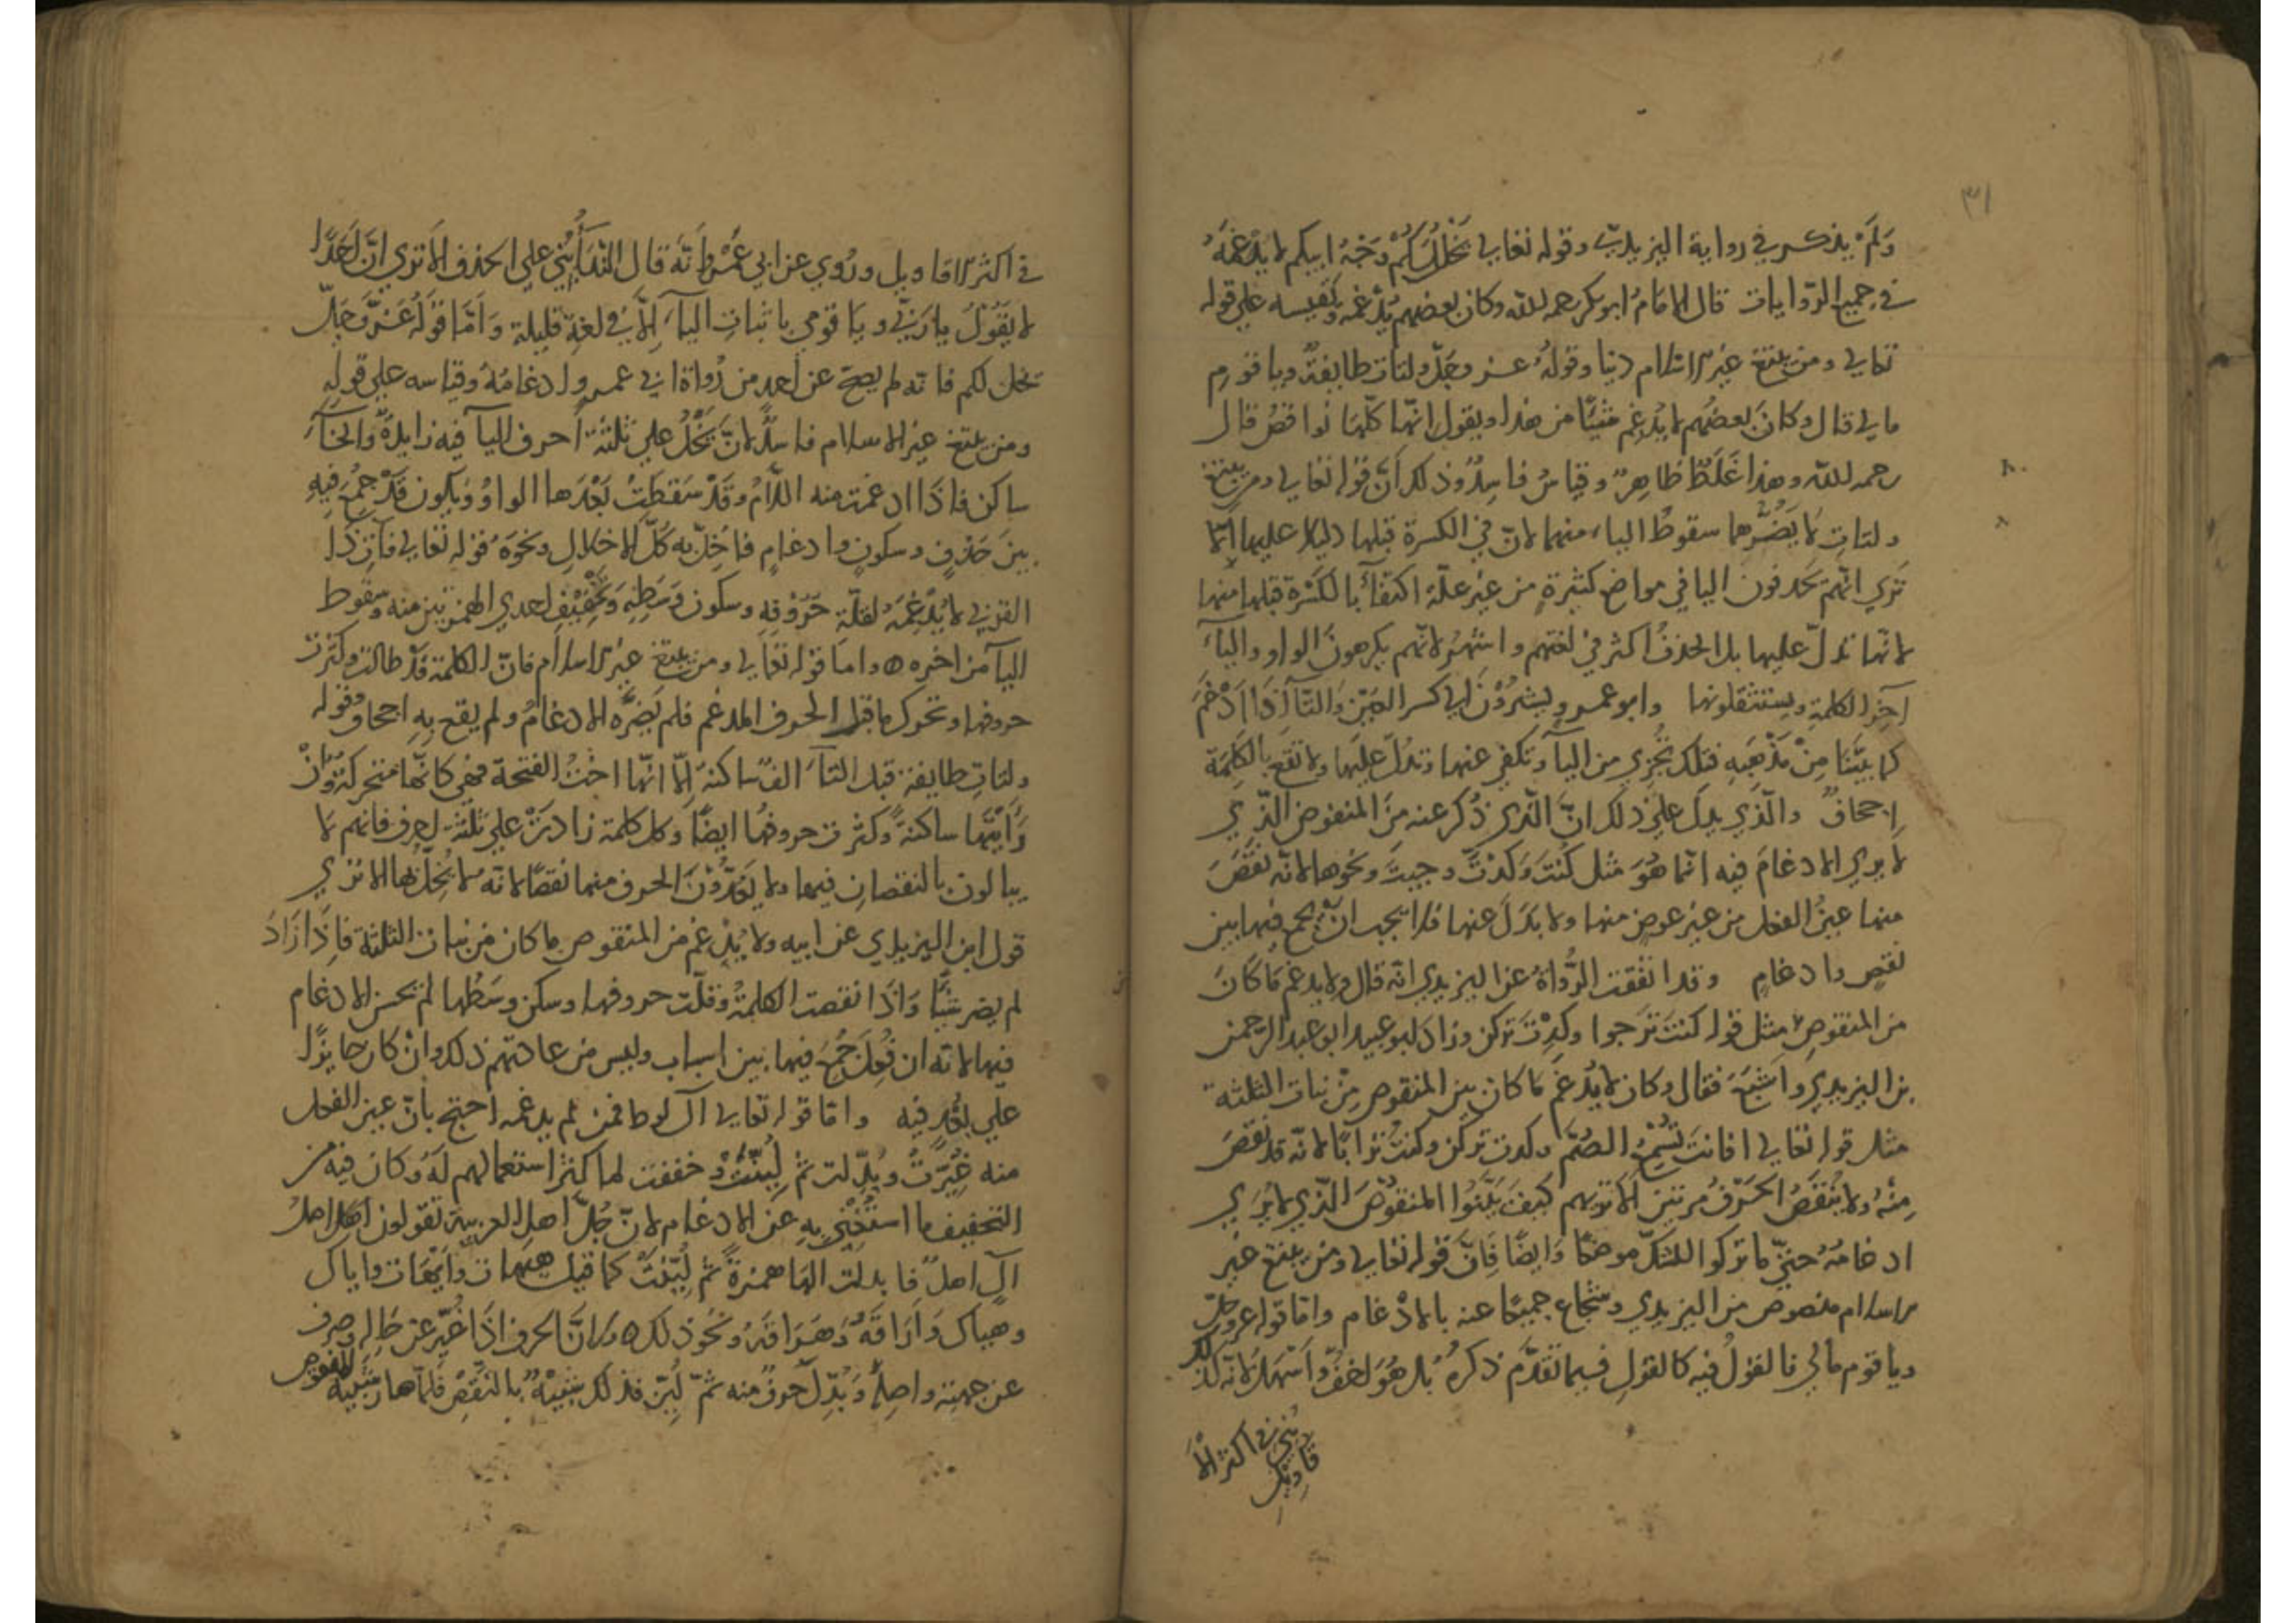 ٣١
وَلَمْ يذكر في رواية اليزيديّ وقوله تعالى يَخْلُ لَكُمْ وَجْهُ ابيكم لا يُدْغمهُ
في جميع الرّوايات قال الامَامُ ابو بكر رحمه الله وكان بعضهم يُدْغمهُ ويَقيسه على قوله
تعالى ومن يبتغ غير الاسلام دينا وقولهُ عز وجَلّ ولتات طايفةٌ ويا قومِ
مالي قال وكانَ بعضهُم لا يُدغِم شيئًا من هذا ويقول انّها كلّها نواقصُ قال
رحمه الله وهذا غَلَطٌ ظاهِرٌ وقياسٌ فاسِدٌ وذلك أنّ قوله تعالى ومن يبتغ
ولتاتِ لا يَضُرّهما سقوطُ الياء منهما لانّ في الكسرة قبلها دليلا عليها الا
تَري انّهم يحذفون اليا في مواضع كثيرةٍ من غير علّة اكتفآءً بالكَسْرة قبلها منها
لانّها تدلّ عليها بل الحذفُ اكثر في لغتهم واشهَرُ لانّهم يكرهونَ الواو واليآءَ
آخِرَ الكلمةِ ويستثقلونها وابو عمرو يشير الي كسر الغين والتآءِ اذَا ادْغمَ
كما بيّنّا مِنْ مَذْهَبِهِ فتلك تجْزي من اليآءِ وتكفي عنها وتدلّ عليها ولا تقع بالكلِمَة
اجحافٌ والّذي يدلّ علي ذلك انّ الّذي ذُكر عنه مِنَ المنقوص الذّي
لا يري الادغامَ فيه انّما هُوَ مثل كُنتَ وَكدْتّ وجيتَ ونحوها لانّه نقَصَ
منها عينُ الفعل من غير عوضٍ منها ولا بدَلَ عنها فلا يجب انْ يجمع فيها بين
نقصٍ وادغامٍ وقد اتفقت الرُّواةُ عن اليزيدي انّه قال ولا يدغم ما كانَ
من المنقوص مثل قوله كنتَ تَرجوا وكِدْتَ تركن وزادَ ابو عبيد ابو عبد الرحمن
بن اليزيدي واشبَعَ فقال وكان لا يُدْغمُ ما كان من المنقوص مِنْ بنات الثلثة
مثل قوله تعالى افانتَ تُسْمِعُ الصُمَّ وكدت تركن وكنتُ تُرابًا لانّه قد نقصَ
مِنْهُ ولا يُنقَصُ الحَرْفُ مرتين ألا تريهم كيفَ بَيَّنُوا المنقُوصَ الّذي لا يُري
ادغامُهُ حتيّ ما تركوا للشكّ موضعًا وَايضًا فإنّ قوله تعالى ومن يبتغ غير
الاسلام منصوص من اليزيدي وشجاع جميعًا عنه بالادْغام وامّا قوله عز وجلّ
ويا قوم مالي فالقولُ فيه كالقولِ فيما تقدّم ذكرهُ بَل هُوَ اخفّ وأسْهَلُ لانّه كذلك
يُبني في اكثر الأ
قاويل
في اكثر الاقاويل ورُوي عن ابي عَمْرٍو انّه قال النّدَاءُ يُبْني علي الحذف الا تري انّ احَدًا
لا يَقُوْلُ يا ربّي ويَا قومي باثبات اليآءِ إلّا في لغةٍ قليلة وَامّا قولُهُ عَزّ وَجَلّ
يخل لكم فانّه لم يصحّ عن احدٍ من رُواة ابي عمرو ادغامُهُ وقياسه علي قولهِ
ومن يبتغ غير الاسلام فاسدٌ لانّ يَخْلُ علي ثلثة أحرف اليآ فيه زايدةٌ والخآءُ
ساكن فاذَا ادغمت منه اللّامُ وقَدْ سَقطتْ بَعْدَها الواوُ وَيكون قَدْ جُمِعَ فيهِ
بينَ حَذفٍ وسكونٍ وادغامٍ فاُخِلّ به كُلّ الاخلال ونحوَهُ قوله تعالى فآت ذا
القربي لا يُدْغِمَهُ لقلّة حُرُوْفِهِ وسكون وَسَطِهِ وَتَخْفِيْفِ احدي الهمزتين منه وسقوط
اليآ من اخره ٥ واما قوله تعالى ومن يبتغ غير الاسلام فانّ الكلمة قدْ طالت وكثرت
حروفها وتحرك ما قبل الحرف المدغم فلم يَضرّه الادغامُ ولم يقع بِهِ اجحاف وقوله
ولتاتِ طايفة قبل التآءِ الفٌ ساكنة إلّا انّها اختُ الفتحة فهي كانّها متحركةٌ وَانْ
رَأيتَها ساكنةً وكثرت حروفهُا ايضًا وكل كلمة زادتْ علي ثلثة احرف فانهم لا
يبالون بالنقصانِ فيها ولا يَعُدُّوْنَ الحرف منها نقصًا لانّه لا يُخِلّ بها الا تري
قول ابن اليزيدي عن ابيه ولا يُدْغم من المنقوص ما كان من بنات الثلثة فاِذا زَادَ
لم يضر شيئًا وَاذا نقصت الكلمةُ وقلّت حروفها وسكن وسَطُها لم يحسن الادغام
فيها لانّه ان فُعِلَ جُمِعَ فيها بين اسباب وليس من عادتهم ذلك وانْ كان جايزًا
علي بُعْدٍ فيه وامّا قوله تعالى آل لوط فمن لم يدغمه احتج بأنّ عين الفعل
منه غُيّرتْ وبُدّلت ثمّ لُيّنَتْ وخففت لما كثر استعمالهم لَهُ وكان فيه من
التخفيف ما استُغْنِيَ بِهِ عن الادغام لانّ جُلّ اهل العربية تقولون اصل
آل اهلٌ فابدلت الهَا همزةً ثمّ لُيّنتْ كما قيل هيهات وأيهَات واياك
وهياك وَأرَاقَهُ وَهَرَاقَهُ ونحْوُ ذلك ٥ ولانّ الحرف اذا غُيّر عن حَالِهِ وصرف
عن جهته واصلِهِ وَبُدّل حرفٌ منه ثمّ لُيّن فذلك شبيهٌ بالنّقصِ فلمّا صار شبيهَ المنقوص